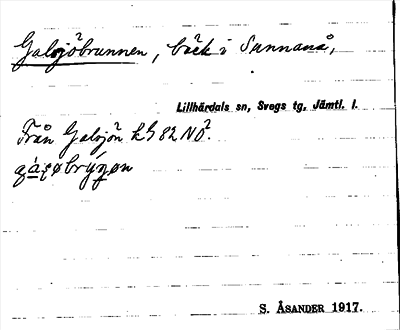 Galsjöbrunnen, bäck i Sunnanå,
Lillhärdals sn, Svegs tg, Jämtl. l.
Från Galsjön k S 82 NÖ2.
S. ÅSANDER 1917.